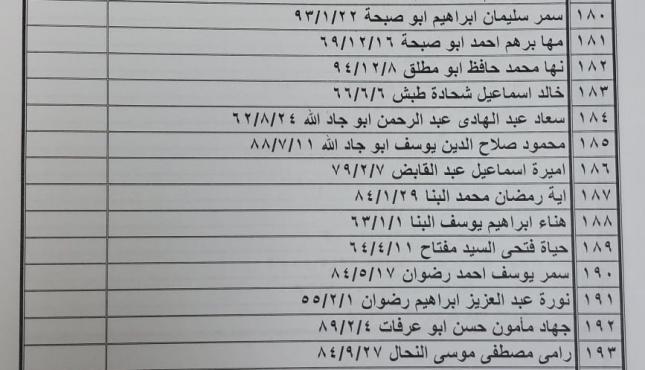 ١٨٠ سمر سليمان ابراهيم ابو صبحة ٩٣/١/٢٢
١٨١ مها برهم احمد ابو صبحة ٦٩/١٢/١٦
١٨٢ نها محمد حافظ ابو مطلق ٩٤/١٢/٨
١٨٣ خالد اسماعيل شحادة طبش ٦٦/٦/٦
١٨٤ سعاد عبد الهادى عبد الرحمن ابو جاد الله ٦٢/٨/٢٤
١٨٥ محمود صلاح الدين يوسف ابو جاد الله ٨٨/٧/١١
١٨٦ اميرة اسماعيل عبد القابض ٧٩/٢/٧
١٨٧ اية رمضان محمد البنا ٨٤/١/٢٩
١٨٨ هناء ابراهيم يوسف البنا ٦٣/١/١
١٨٩ حياة فتحى السيد مفتاح ٦٤/٤/١١
١٩٠ سمر يوسف احمد رضوان ٨٤/٥/١٧
١٩١ نورة عبد العزيز ابراهيم رضوان ٥٥/٢/١
١٩٢ جهاد مأمون حسن ابو عرفات ٨٩/٢/٤
١٩٣ رامى مصطفى موسى النحال ٨٤/٩/٢٧